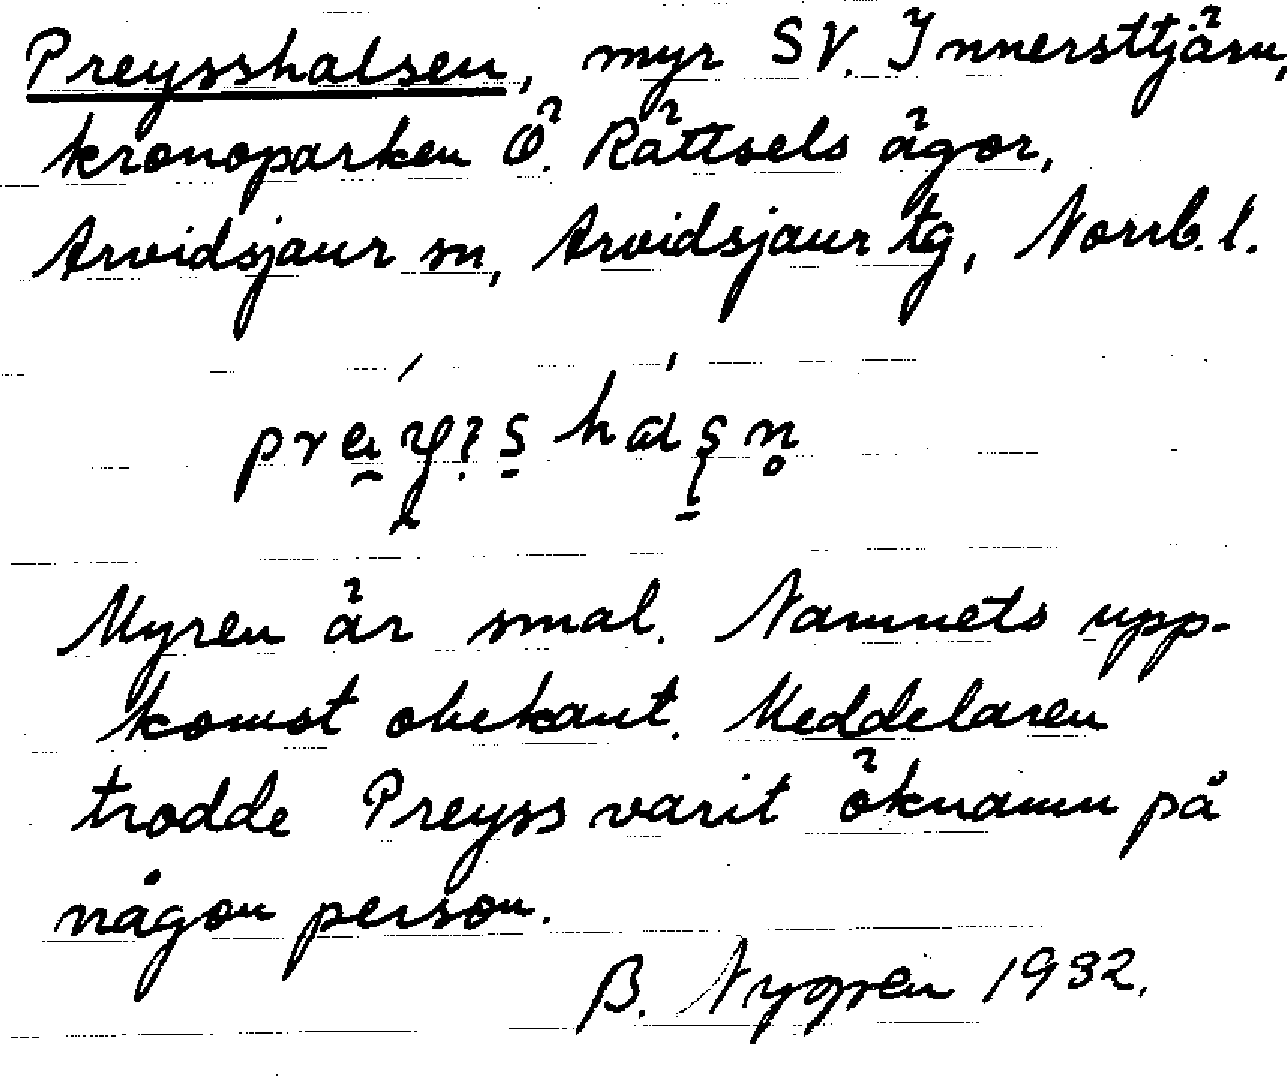 Preysshalsen, myr SV. Innersttjärn,
kronoparken Ö. Rättsels ägor,
Arvidsjaur sn, Arvidsjaur tg, Norrb. l.
Myren är smal. Namnets upp-
komst obekant. Meddelaren
trodde Preyss varit öknamn på
någon person.
B. Nygren 1932.